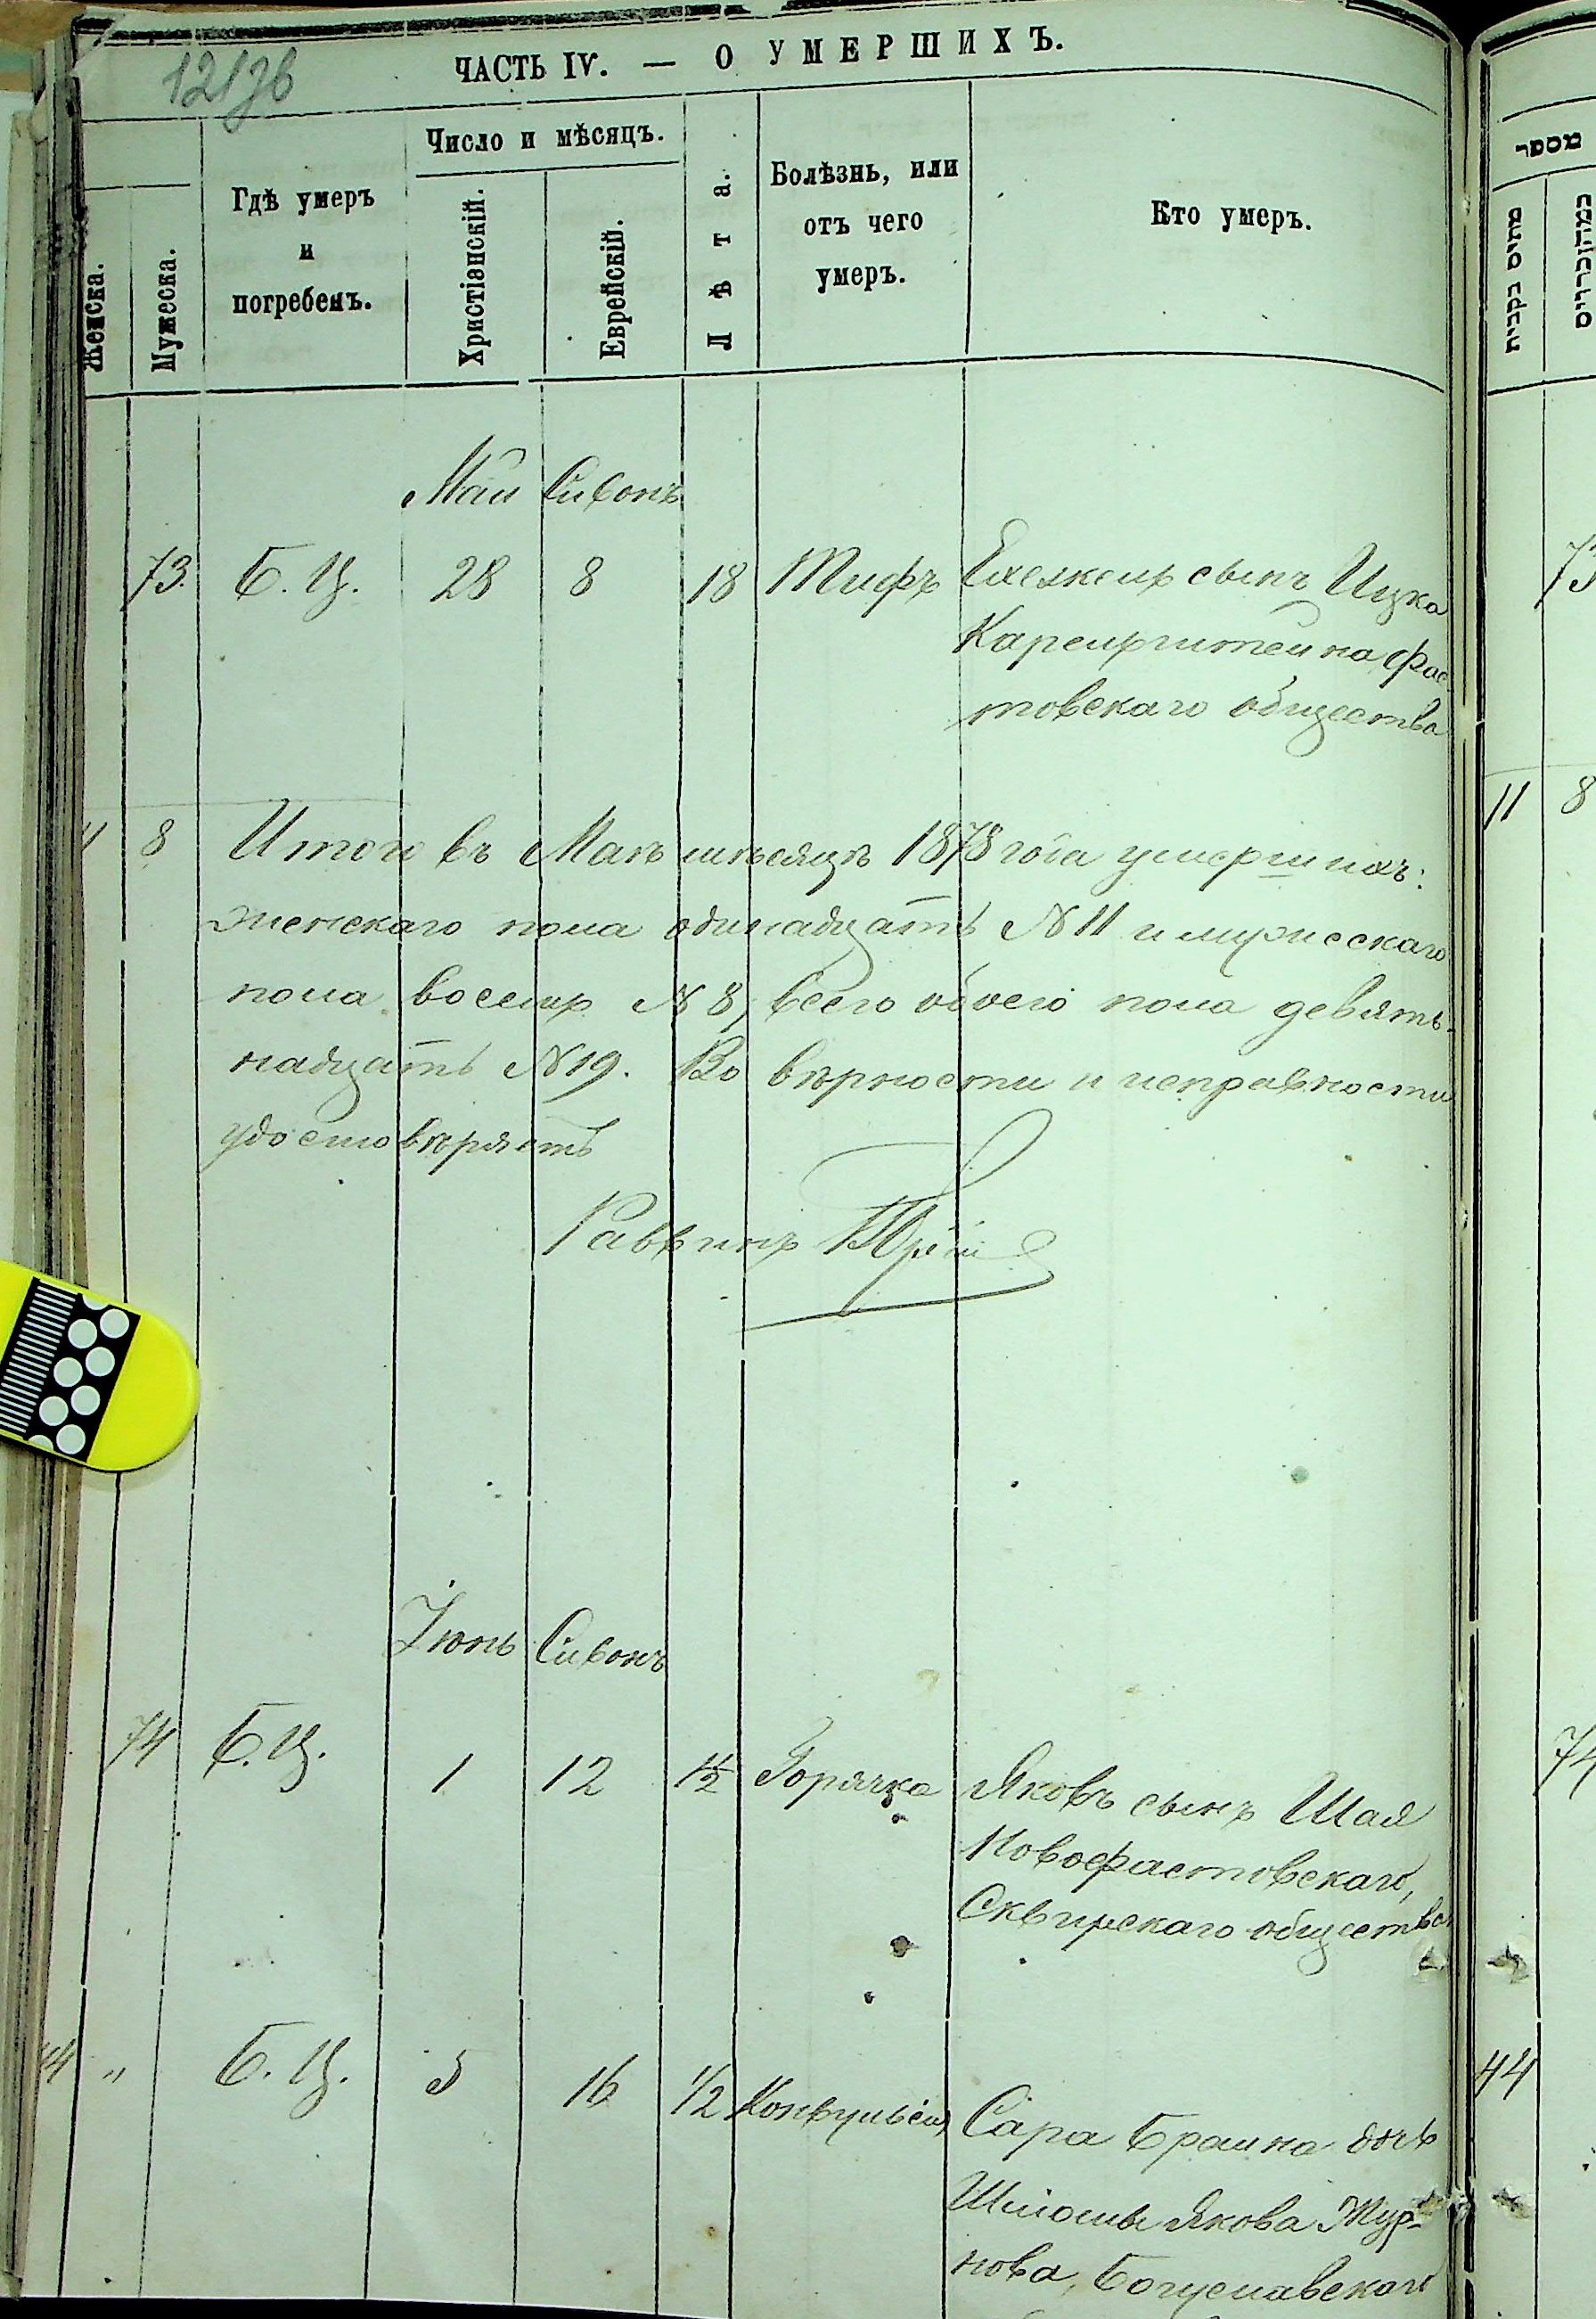 ЧАСТЬ IV. — О УМЕРШИХЪ.
Женска.
Мужеска.
Гдѣ умеръ
и
погребенъ.
Число и мѣсяцъ.
Христіанскій.
Еврейскій.
Лѣта.
Болѣзнь, или
отъ чего
умеръ.
Кто умеръ.
מספר
Май Сивонъ
73. Б. Ц. 28 8 18 Тифъ сынъ Ицка
Фас
товскаго общества
8 Итого въ Маѣ мѣсяцѣ 1878 года умершихъ:
женскаго пола одинадцать N 11 и мужескаго
пола восемь N 8, всего обоего пола девять-
надцать N 19. Во вѣрности и исправности
удостовѣряетъ
Раввинъ
Іюнь Сивонъ
74 Б. Ц. 1 12 1½ Горячка Яковъ сынъ Шая
Новофастовскаго,
Сквирскаго общества
44 " Б. Ц. 5 16 1/2 Конвульсіи Сара Браина дочь
Шломы Якова Жур-
нова, Богуславскаго
11 8
74
44